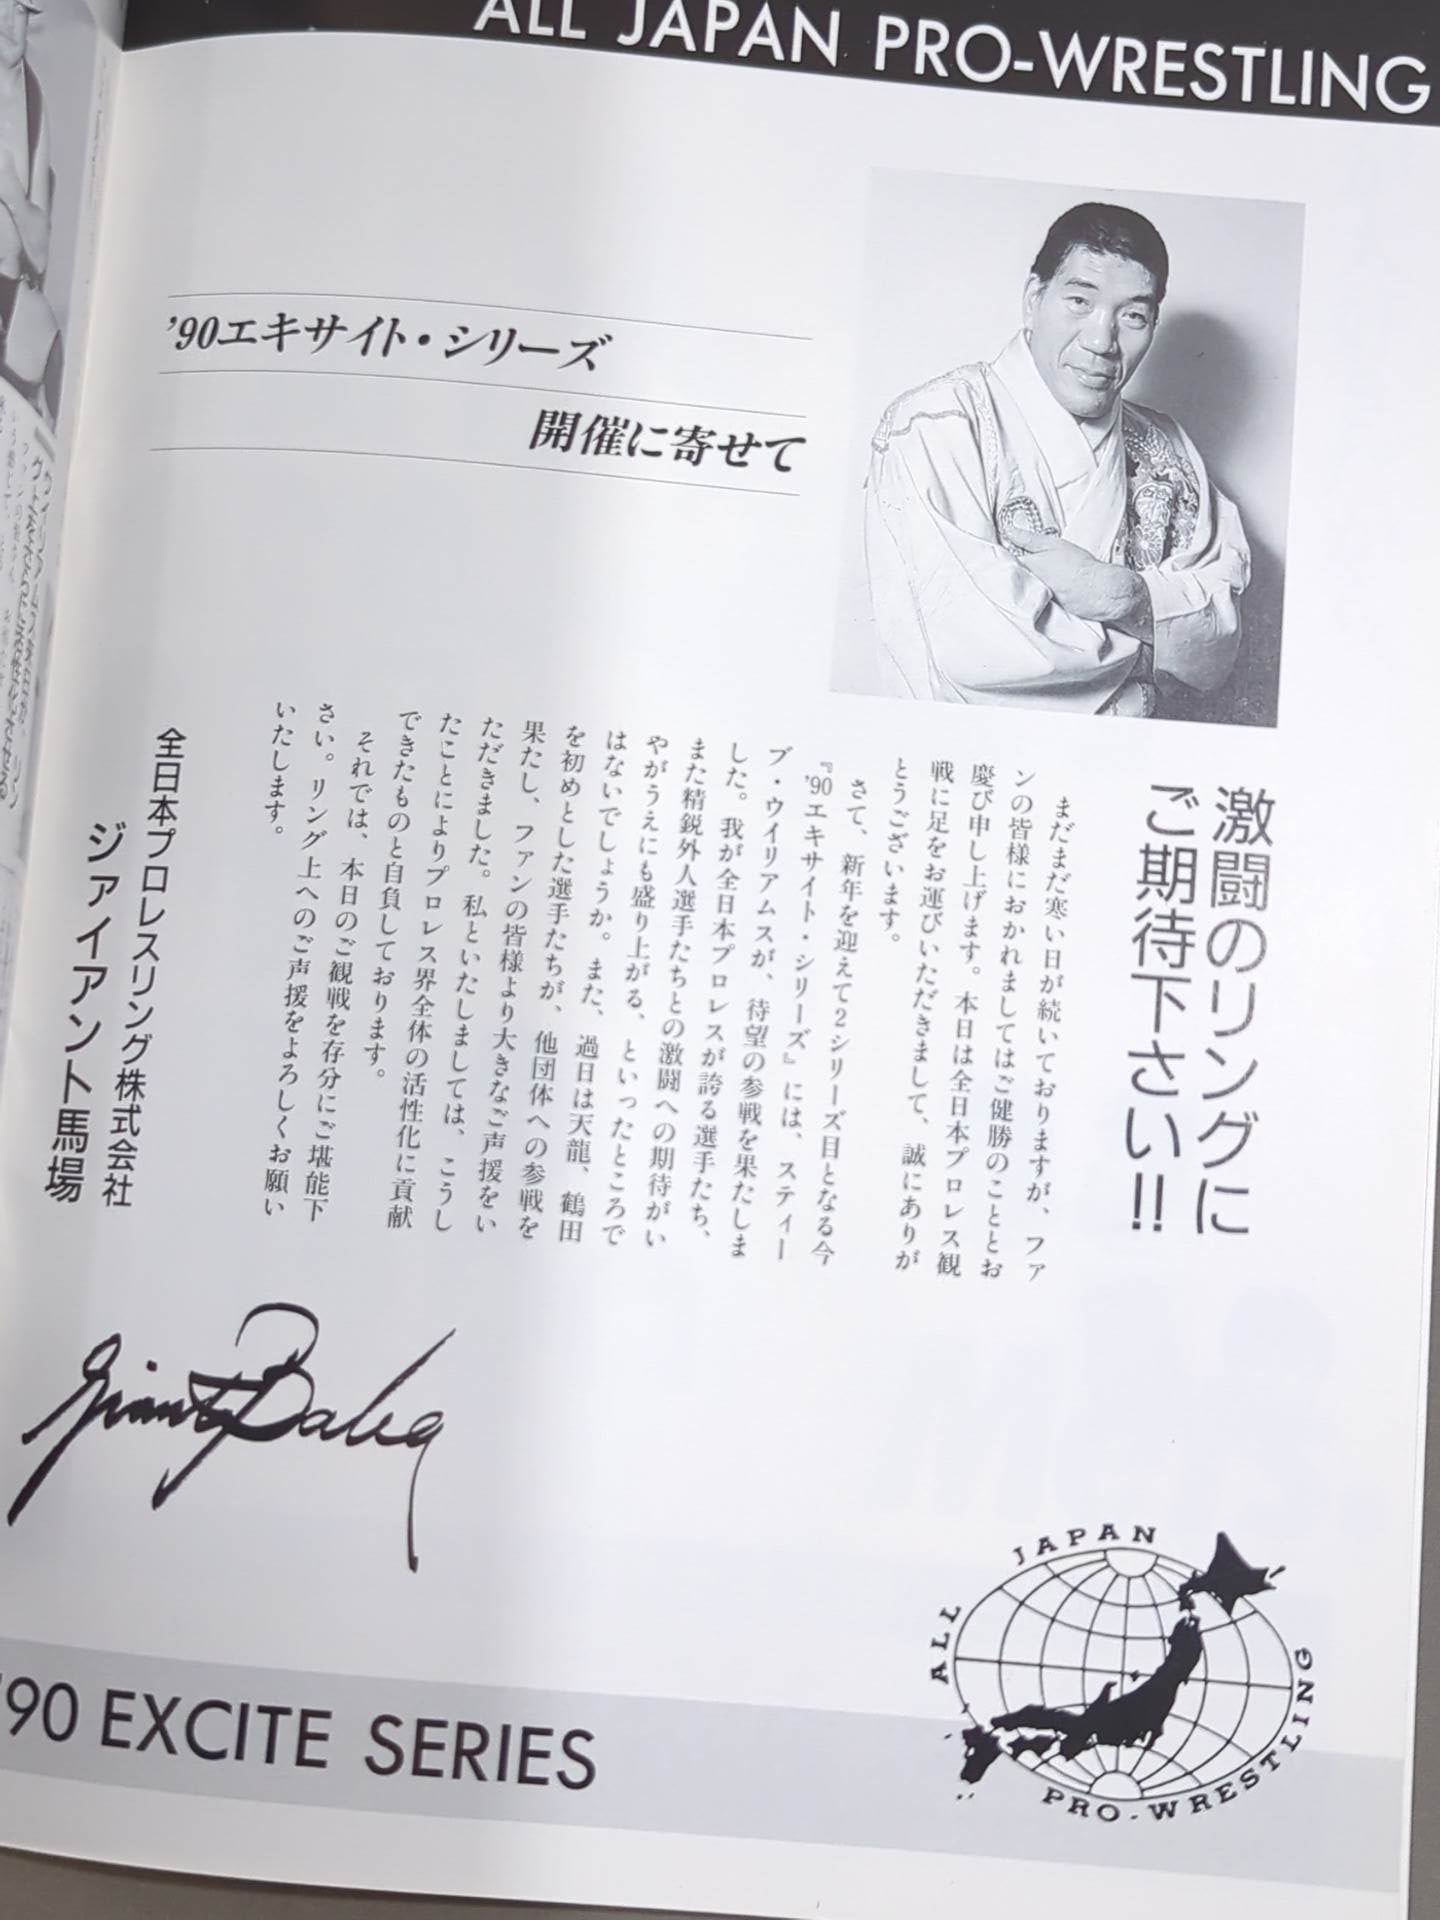 ALL JAPAN PRO-WRESTLING
’90エキサイト・シリーズ
開催に寄せて
激闘のリングに
ご期待下さい!!
まだまだ寒い日が続いておりますが、ファ
ンの皆様におかれましてはご健勝のこととお
慶び申し上げます。本日は全日本プロレス観
戦に足をお運びいただきまして、誠にありが
とうございます。
さて、新年を迎えて2シリーズ目となる今
『’90エキサイト・シリーズ』には、スティー
ブ・ウイリアムスが、待望の参戦を果たしま
した。我が全日本プロレスが誇る選手たち、
また精鋭外人選手たちとの激闘への期待がい
やがうえにも盛り上がる、といったところで
はないでしょうか。また、過日は天龍、鶴田
を初めとした選手たちが、他団体への参戦を
果たし、ファンの皆様より大きなご声援をい
ただきました。私といたしましては、こうし
たことによりプロレス界全体の活性化に貢献
できたものと自負しております。
それでは、本日のご観戦を存分にご堪能下
さい。リング上へのご声援をよろしくお願い
いたします。
全日本プロレスリング株式会社
ジァイアント馬場
Giant Baba
’90 EXCITE SERIES
ALL JAPAN
PRO-WRESTLING